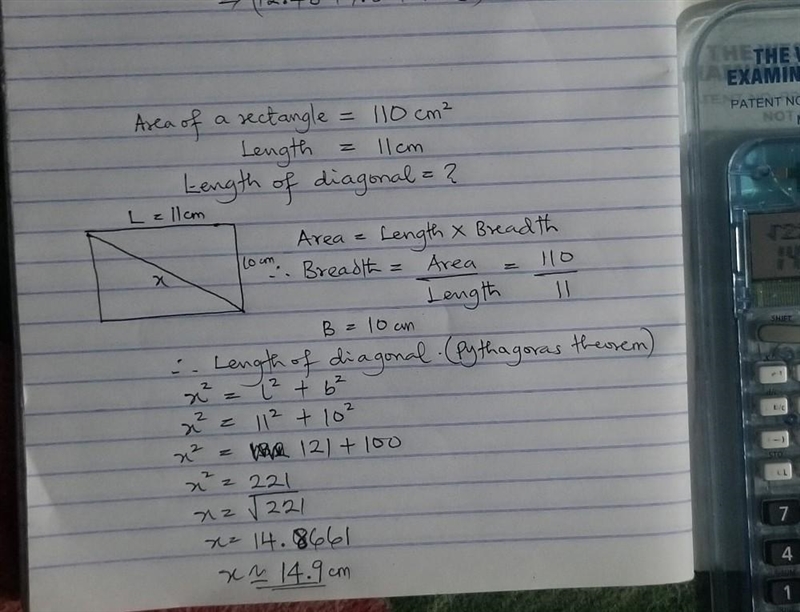 Area of a rectangle = 110 cm²
Length = 11cm
Length of diagonal = ?
L = 11cm
10cm
x
Area = Length × Breadth
∴ Breadth = Area / Length = 110 / 11
B = 10 cm
∴ Length of diagonal. (Pythagoras theorem)
x² = l² + b²
x² = 11² + 10²
x² = 121 + 100
x² = 221
x = √221
x = 14.8661
x ≈ 14.9 cm
THE
EXAMIN
PATENT NO
NOT
SHIFT
7
4
1